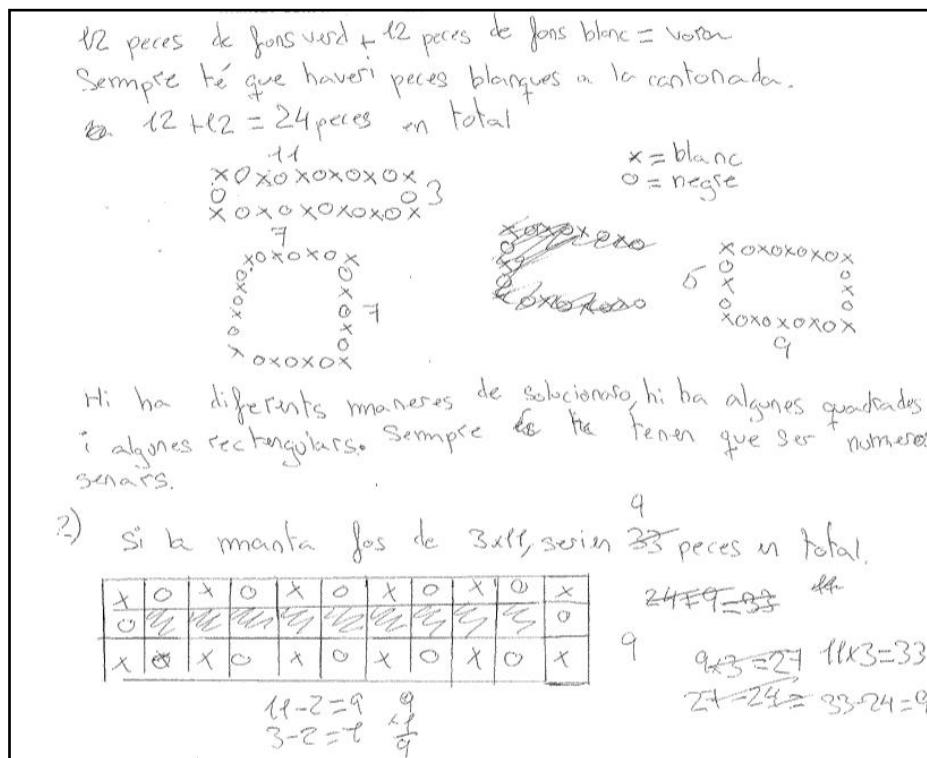 12 peces de fons verd + 12 peces de fons blanc = vora
Sempre té que haveri peces blanques a la cantonada.
12 + 12 = 24 peces en total
x = blanc
o = negre
11
x o x o x o x o x o x
o o 3
x o x o x o x o x o x
7
x o x o x o x
7
x o x o x o x
x o x o x o x o x
5
x o x o x o x o x
9
Hi ha diferents maneres de solucionaro, hi ha algunes quadrades
i algunes rectangulars. Sempre tenen que ser numeros
senars.
2) Si la manta fos de 3x11, serien 9 peces en total.
x o x o x o x o x o x
o o
x o x o x o x o x o x
9
24+9=33
9x3=27 11x3=33
27-24= 33-24=9
11-2=9
3-2=1
9
x1
9